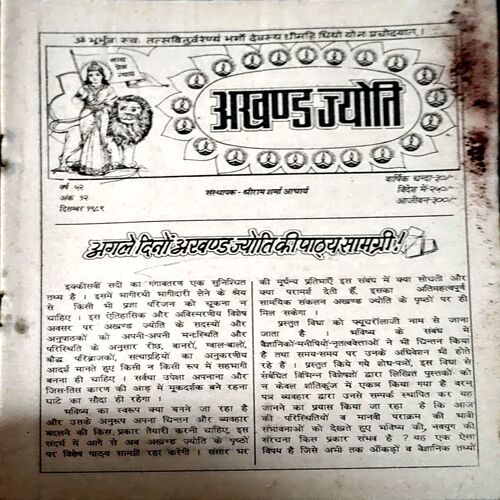 ॐ भूर्भुवः स्वः तत्सवितुर्वरेण्यं भर्गो देवस्य धीमहि धियो योनः प्रचोदयात् ।
अखण्ड ज्योति
वर्ष ५२
अंक १२
दिसम्बर १९८९
संस्थापक - श्रीराम शर्मा आचार्य
वार्षिक चन्दा-३०/-
विदेश में-२५०/-
आजीवन-३००/-
अगले दिनों अखण्ड ज्योति की पाठ्य सामग्री !
इक्कीसवीं सदी का गंगावतरण एक सुनिश्चित
तथ्य है । इसमें भागीरथी भागीदारी लेने के श्रेय
से किसी भी प्रज्ञा परिजन को चूकना न
चाहिए । इस ऐतिहासिक और अविस्मरणीय विशेष
अवसर पर अखण्ड ज्योति के सदस्यों और
अनुपाठकों को अपनी-अपनी मनःस्थिति और
परिस्थिति के अनुसार रीछ, वानरों, ग्वाल-बालों,
बौद्ध परिव्राजकों, सत्याग्रहियों का अनुकरणीय
आदर्श मानते हुए किसी न किसी रूप में सहभागी
बनना ही चाहिए । सर्वथा उपेक्षा अपनाना और
जिस-तिस कारण की आड़ में मूकदर्शक बने रहना
घाटे का सौदा ही रहेगा ।
भविष्य का स्वरूप क्या बनने जा रहा है
और उसके अनुरूप अपना चिन्तन और व्यवहार
बदलने की किस प्रकार तैयारी करनी चाहिए, इस
संदर्भ में आगे से अब अखण्ड ज्योति के पृष्ठों
पर विशेष पाठ्य सामग्री रहा करेगी । संसार भर
की मूर्धन्य प्रतिभाएँ इस संबंध में क्या सोचती और
क्या परामर्श देती हैं, इसका अतिमहत्वपूर्ण
सामयिक संकलन अखण्ड ज्योति के पृष्ठों पर ही
मिल सकेगा ।
प्रस्तुत विधा को फ्यूचरॉलाजी नाम से जाना
जाता है । भविष्य के संबंध में
वैज्ञानिकों-मनीषियों-नृतत्ववेत्ताओं ने भी चिन्तन किया
है तथा समय-समय पर उनके अधिवेशन भी होते
रहे हैं । प्रस्तुत किये गये शोध-पत्रों, इस विधा से
संबंधित विभिन्न विशेषज्ञों द्वारा लिखित पुस्तकों को
न केवल शांतिकुंज में एकत्र किया गया है वरन्
पत्र व्यवहार द्वारा उनसे सम्पर्क स्थापित कर यह
जानने का प्रयास किया जा रहा है कि आज
की परिस्थितियों व मानवी पराक्रम की भावी
संभावनाओं को देखते हुए भविष्य की, नवयुग की
संरचना किस प्रकार संभव है ? यह एक ऐसा
विषय है जिसे अभी तक आँकड़ों व वैज्ञानिक तथ्यों